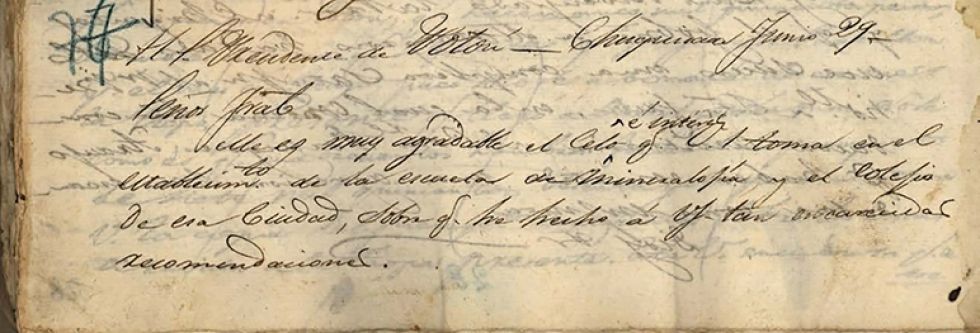 Al Sr. Presidente de Potosí — Chuquisaca Junio 29.
Señor Gral
Me es muy agradable el Celo q̃ ^é interés V toma en el
establecimto de la escuela de Mineralojía y el Colejio
De esa Ciudad, sobre q̃ he hecho á V tan encarecidas
recomendaciones.